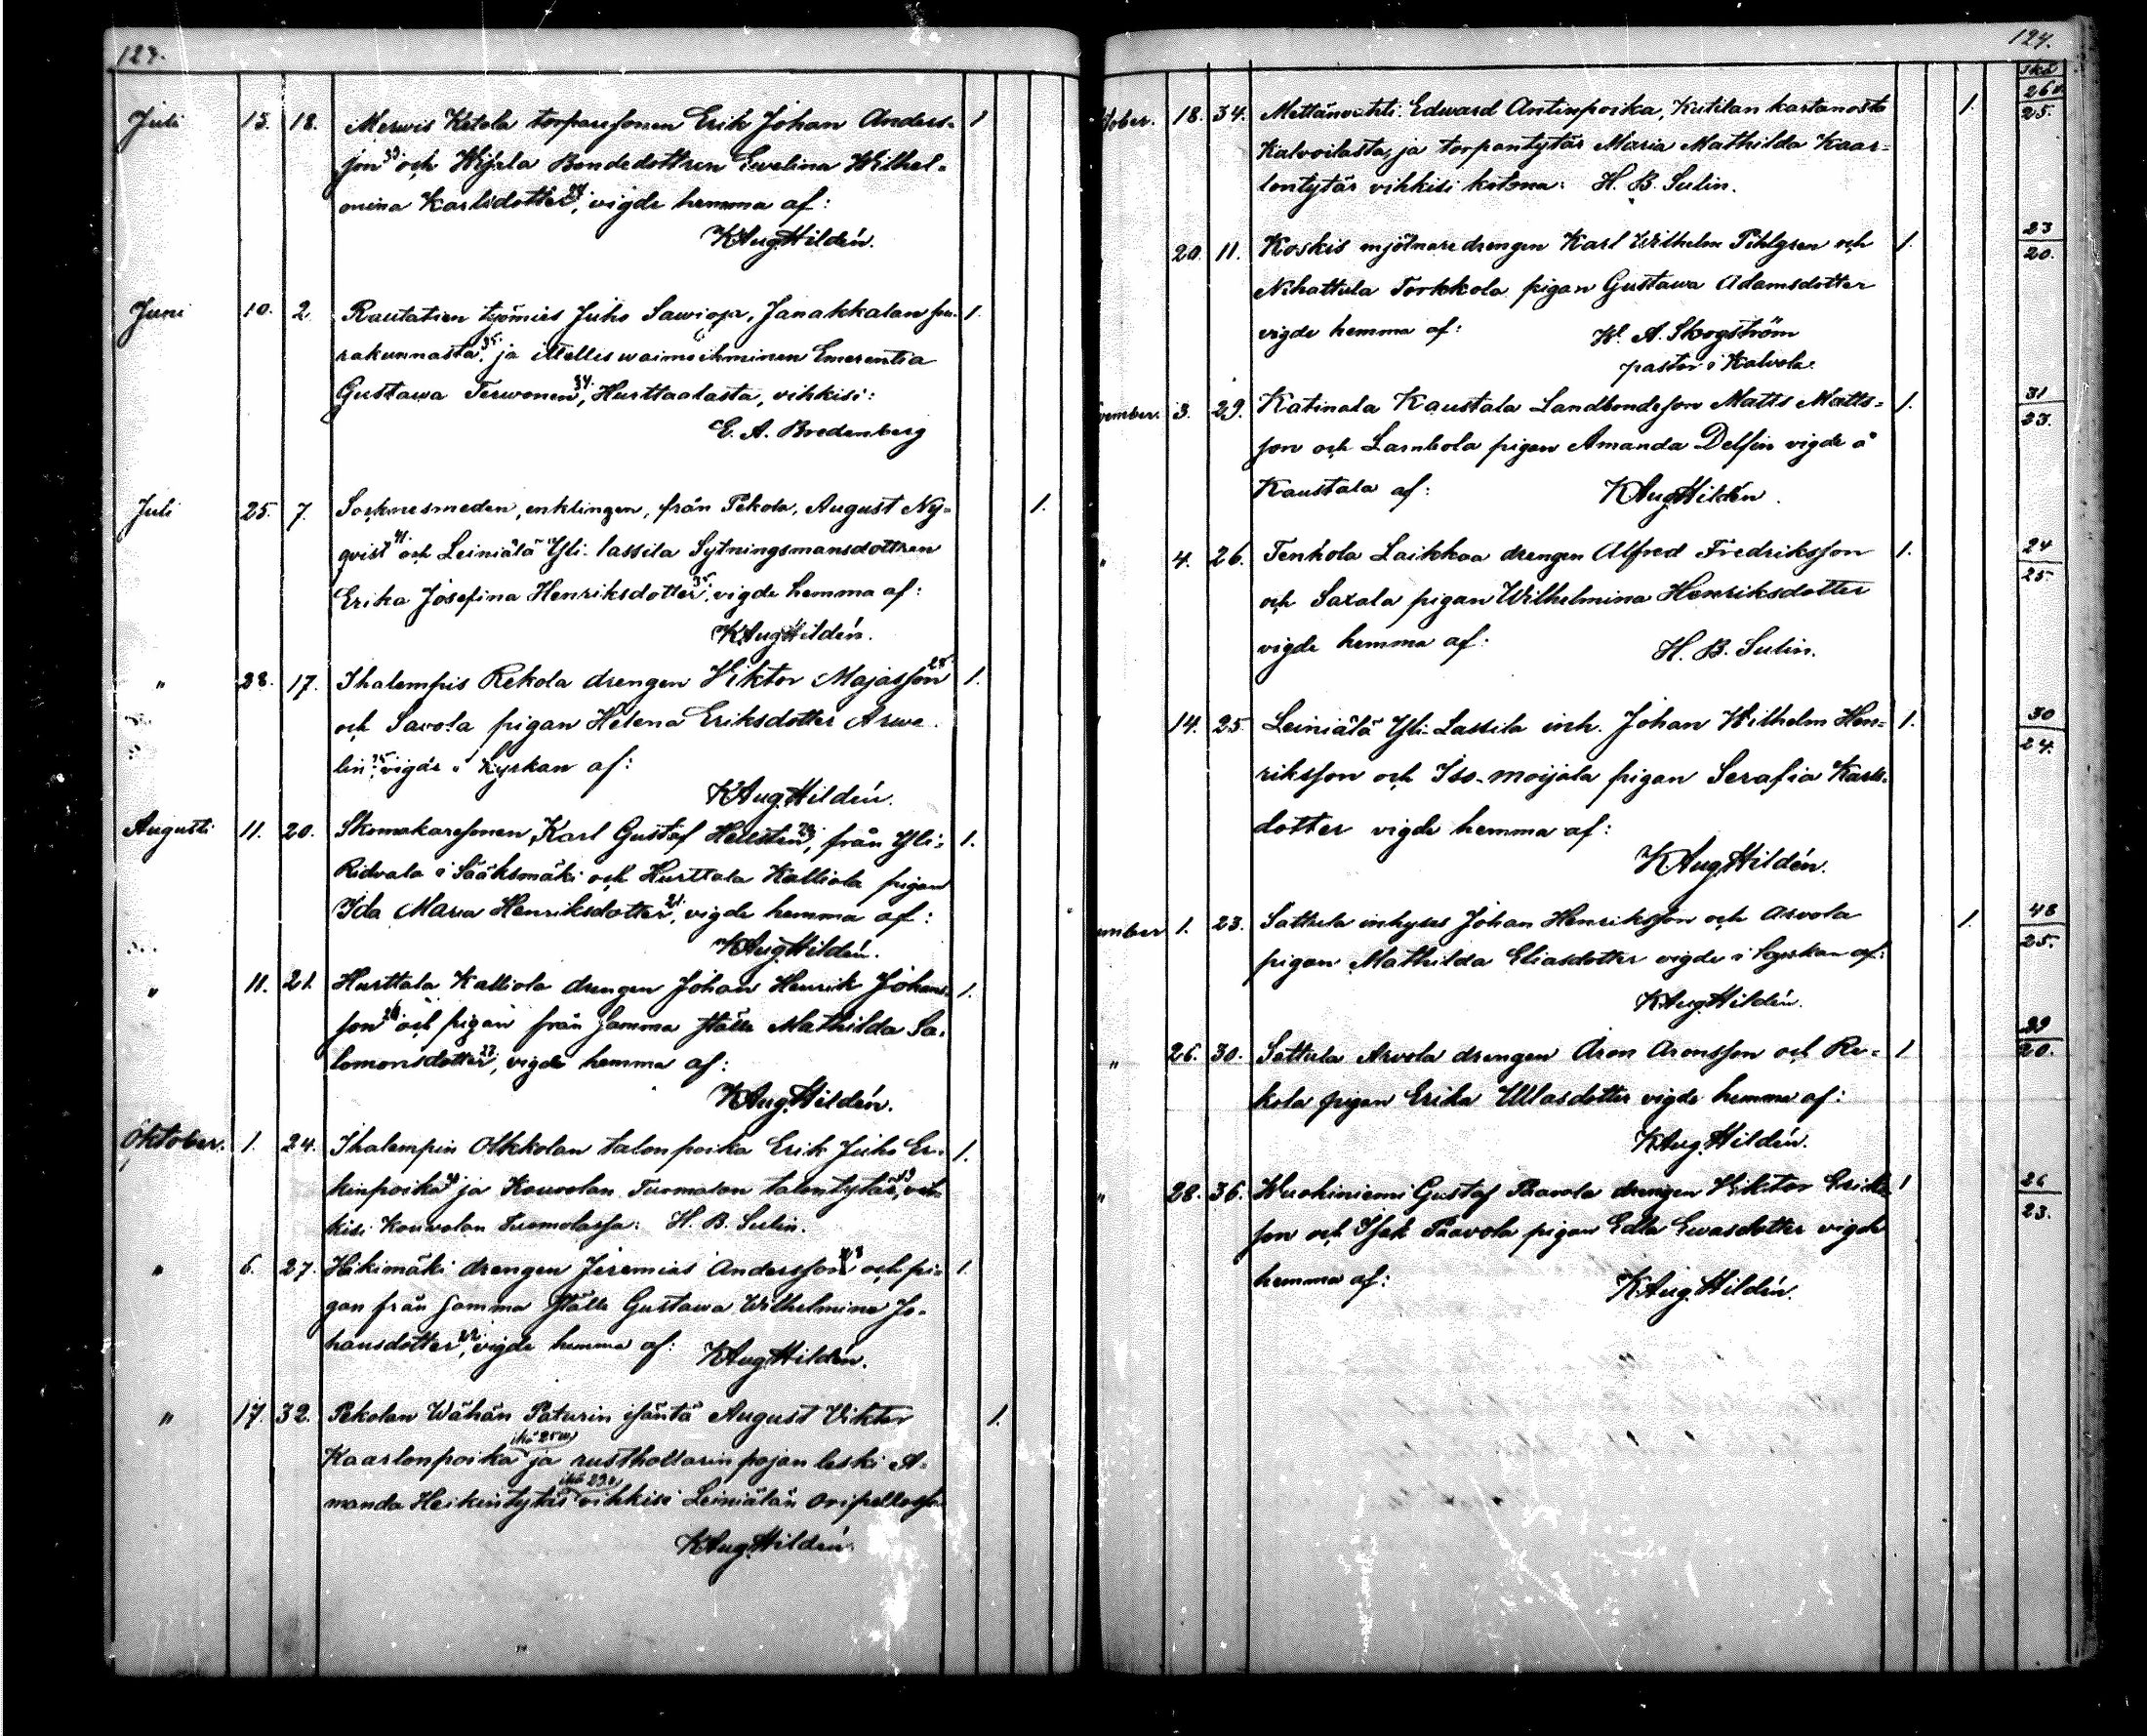 124.
Juli 15. 18. Merwis Ketola torparesonen Erik Johan Anders- 1
son och Wijala Bondedottren Ewelina Wilhel-
mina Karlsdotter, vigde hemma af:
KAug.Hildén.
Juni 10. 2. Rautatien työmies Juho Sawioja, Janakkalan seu- 1.
rakunnasta 35. ja itellis waimoihminen Emerentia
Gustawa Terwonen 34., Hurttaalasta, vihkisi:
E. A. Bredenberg
Juli 25. 7. Socknesmeden, enklingen, från Pekola, August Ny- 1.
qvist 41. och Leiniälä Yli-lassila Sytningsmansdottren
Erika Josefina Henriksdotter 35. vigde hemma af:
KAug.Hildén.
" 28. 17. Ihalempis Rekola drengen Viktor Majasson 1.
och Savola pigan Helena Eriksdotter Arwe-
lin, vigde i Kyrkan af:
KAug.Hildén.
Augusti 11. 20. Skomakaresonen Karl Gustaf Hellstén, från Yli- 1.
Ridvala i Sääksmäki och Hurttala Kalliola pigan
Ida Maria Henriksdotter 21., vigde hemma af:
KAug.Hildén.
" 11. 21. Hurttala Kalliola drengen Johan Henrik Johans- 1.
son och pigan från samma ställe Mathilda Sa-
lomonsdotter 23, vigde hemma af:
KAug.Hildén.
Oktober. 1. 24. Ihalempin Olkkolan talonpoika Erik Juho Er- 1.
kinpoika ja Kouvolan Tuomolan talontytär, vih-
kisi Kouvolan Tuomolassa: H. B. Sulin.
" 6. 27. Hikimäki drengen Jeremias Andersson och pi- 1.
gan från samma ställe Gustawa Wilhelmina Jo-
hansdotter 22., vigde hemma af: KAug.Hildén.
" 17. 32. Pekolan Wähän Paturin isäntä August Viktor 1.
Kaarlonpoika ikä 25 w ja rusthollarin pojan leski A-
manda Heikintytär ikä 29 w vihkisi Leiniälän Oripellossa
KAug.Hildén.
124.
ikä
tober. 18. 34. Mettänvahti Edward Antinpoika, Kutilan kartanosta 1. 26
Kalvoilasta, ja torpantytär Maria Mathilda Kaar- 25.
lontytär vihkisi kotona: H. B. Sulin.
20. 11. Koskis mjölnare drengen Karl Wilhelm Pihlgren och 1. 23
Nihattula Torkkola pigan Gustawa Adamsdotter 20.
vigde hemma af: Kl. A. Skogström
pastor i Kalvola.
vember. 3. 29. Katinala Kaustala Landbondeson Matts Matts- 1. 31
son och Larnkola pigan Amanda Delfin vigde å 23.
Kaustala af: KAug.Hildén.
" 4. 26. Tenhola Laikkaa drengen Alfred Fredriksson 1. 24
och Saxala pigan Wilhelmina Henriksdotter 25.
vigde hemma af: H. B. Sulin.
14. 25. Leiniälä Yli-Lassila inh. Johan Wilhelm Hen- 1. 30
riksson och Iso-moijala pigan Serafia Karls- 24.
dotter vigde hemma af:
KAug.Hildén.
ember 1. 23. Sattula inhyses Johan Henriksson och Arvola 1. 48
pigan Mathilda Eliasdotter vigde i kyrkan af: 25.
KAug.Hildén.
" 26. 30. Sattula Arvola drengen Aron Aronsson och Re- 1 29
kola pigan Erika Ullasdotter vigde hemma af: 20.
KAug.Hildén.
" 28. 36. Wuohiniemi Gustaf Paavola drengen Wiktor Eriks- 1 26
son och Isak Paavola pigan Edla Ewasdotter vigde 23.
hemma af: KAug.Hildén.